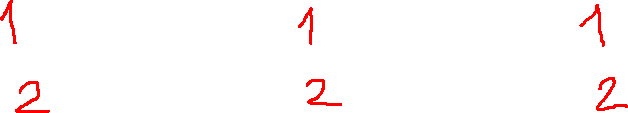 1 1 1
2 2 2